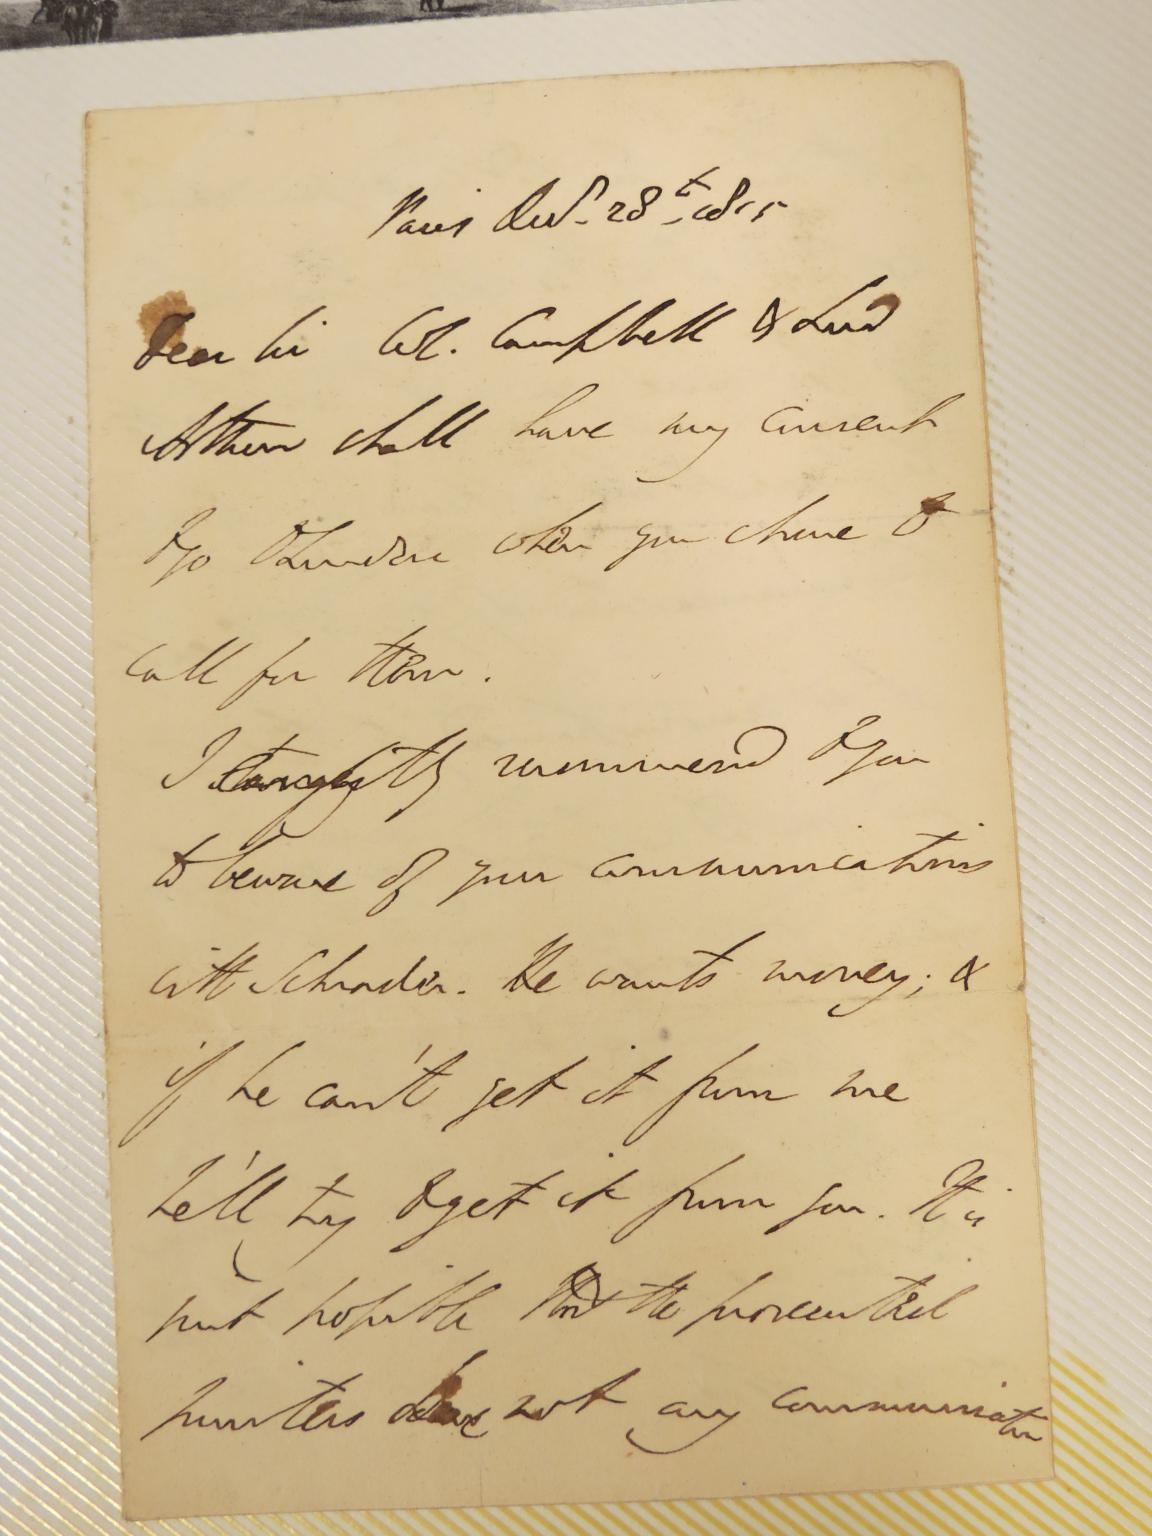 Paris Novr. 28th 1815
Dear Sir Col. Campbell & Lord
Arthur shall have my consent
to go to London when you chuse to
call for them.
I strongly recommend to you
to beware of your communications
with Schrader. He wants money; &
if he can't get it from me
he'll try to get it from you. It is
just possible that the prosecuted
printers have not any communication